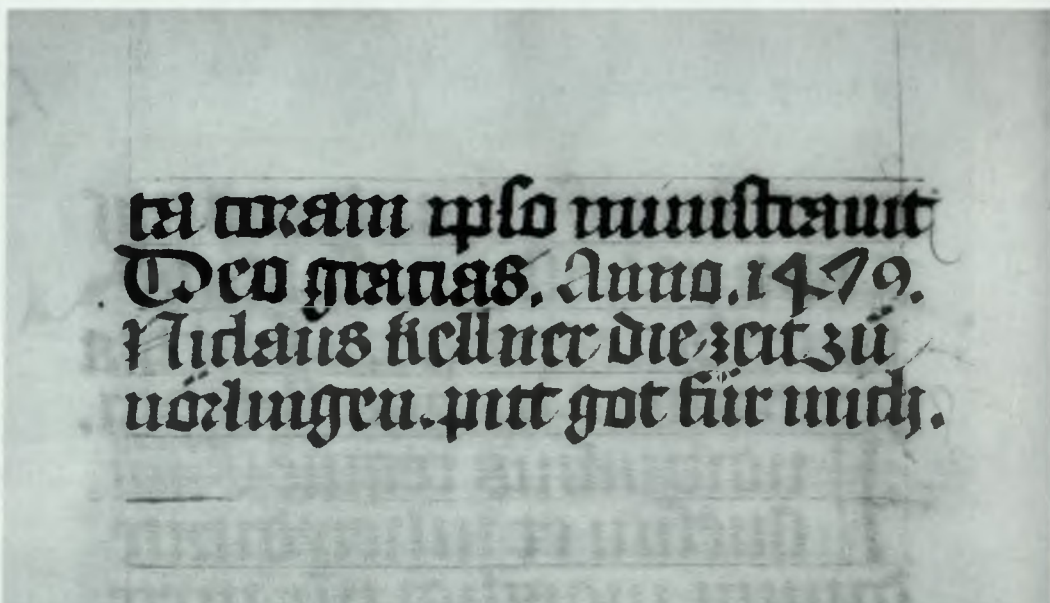 ta coram ipso ministrauit
Deo gracias. Anno. 1479.
Niclaus kellner die zeit zů
nörlingen. pitt got für mich.